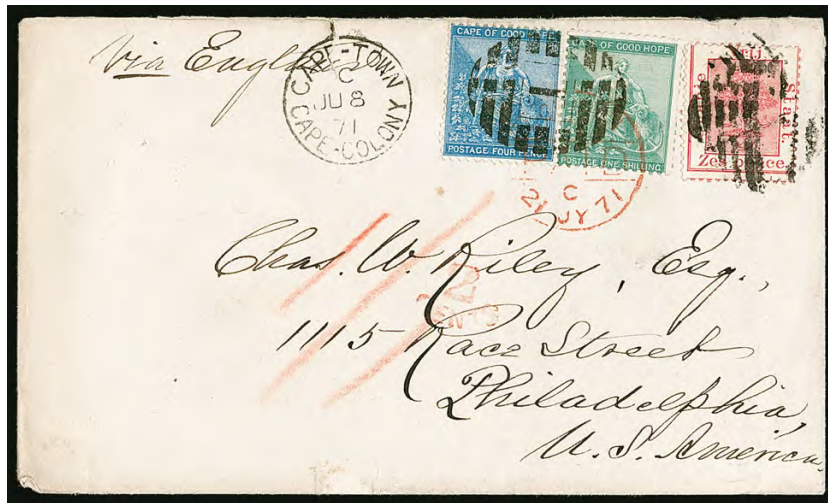 via Engl
CAPE-TOWN
C
JU 8
71
CAPE-COLONY
CAPE OF GOOD
POSTAGE FOUR PENCE
CAPE OF GOOD HOPE
POSTAGE ONE SHILLING
Staat.
C
21 JY 71
Chas. W. Riley, Esq.,
1115 Race Street
Philadelphia,
U. S. America.